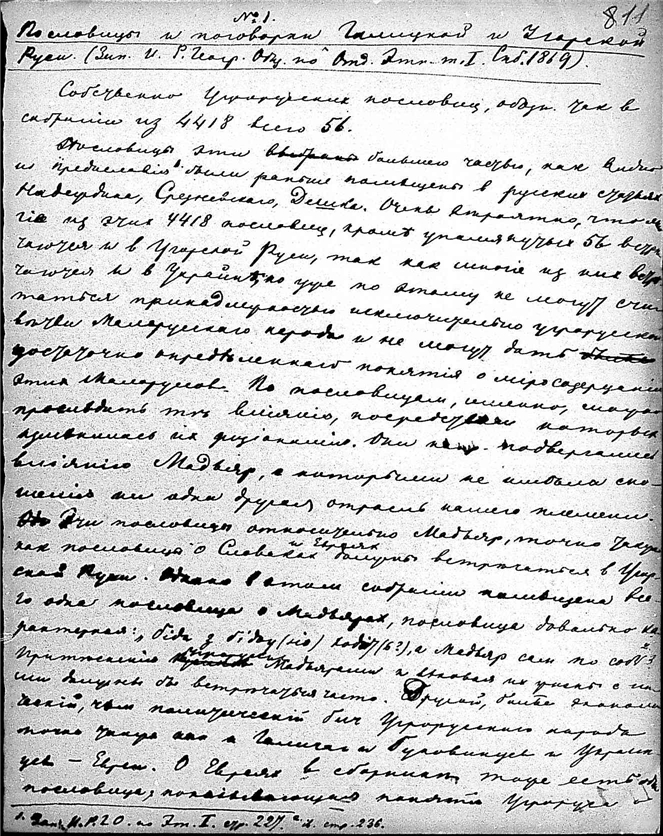 811
№ 1.
Пословицы и поговорки Галицкой и Угорской
Руси (Зап. И. Р. Геогр. Общ. по Отд. Этн. т. I. Спб. 1869).
Собственно Угрорусских пословиц, обозн. так в
собрании из 4418 всего 56.
Пословицы эти большею частью, как видно
из предисловія были раньше помещены в русских
Надеждина, Срезневского, Дешка. Очень вероятно, что
из этих 4418 пословиц, кромѣ упомянутых 56
чаются и в Угорской Руси, так как многіе из них встрѣ
чаются и в Украинѣ, но уже по этому не могут счи
таться принадлежностью исключительно угрорусской
вѣтви Малорусскаго народа и не могут дать
достаточно опредѣленнаго понятія о міросозерцаніи
этих Малорусов. По пословицам, именно, можно
прослѣдить то вліяніе, посредством котораго
измѣнилась их физіономія. Они подвергались
вліянію Мадьяр, с которыми не имѣла сно-
шенія ни одна другая отрасль нашего племени.
Эти пословицы относительно Мадьяр, точно также
как пословицы о Словаках и Евреях должны встрѣчаться в Угор
ской Руси. Однако в этом собраніи помѣщена все
го одна пословица о Мадьярах, пословица довольно ха
рактерная: біда з біды ходит, а Мадьяр сам по собі
Притѣсненія Мадьярами и их с ни
ми должны бы встрѣчаться часто. Другой, болѣе экономи
ческій, чѣм политическій бич Угрорусского народа
точно также как и Галичан и Буковинцев и Украин
цев – Евреи. О Евреях в сборникѣ тоже есть
пословица, показывающая понятія Угроруса
Зап. И. Р. Г. О. по Эт. I. стр. 227. стр. 236.